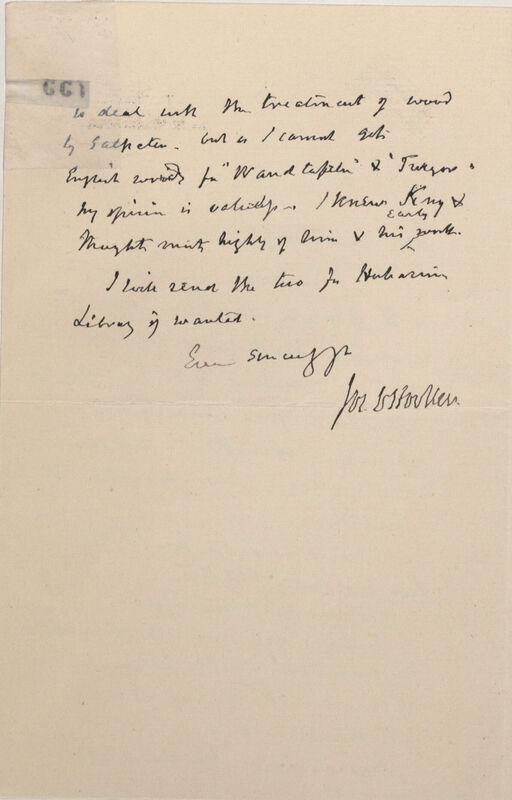 661
to deal with the treatment of wood
by Saltpetre. but as I cannot get
English words for "Wandtafeln" & "Turgor"
my opinion is valueless. I knew Kny &
thought most highly of him & his early work.
I will send the two for Herbarium
Library if wanted.
Ever sincerely yrs
Jos. D. Hooker